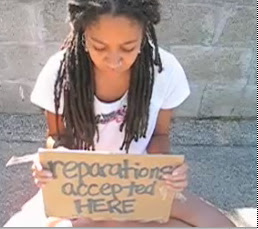 reparations
accepted
HERE